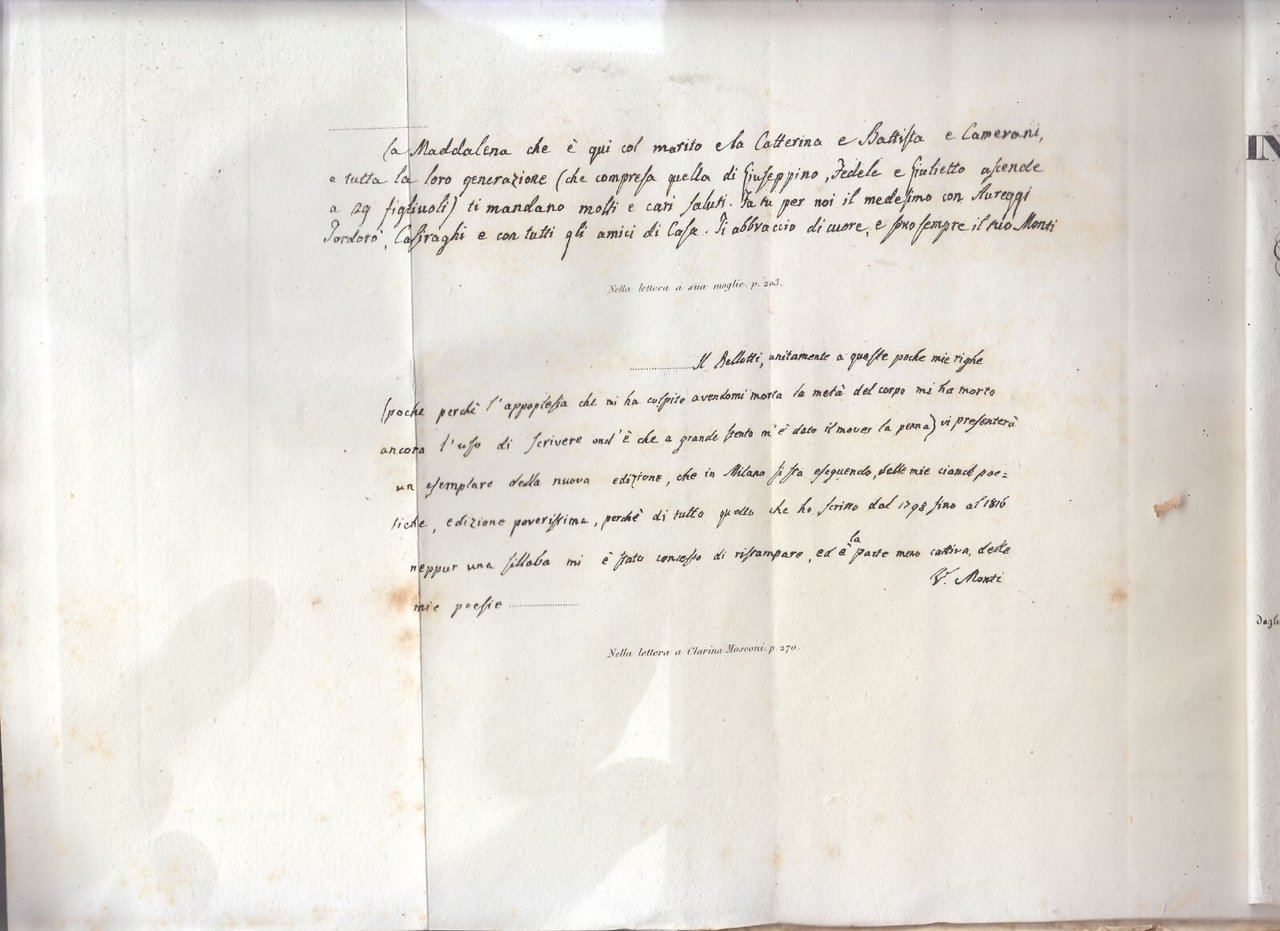 La Maddalena che è qui col marito e la Catterina e Battista e Camerani,
e tutta la loro generazione (che compresa quella di Giuseppino, Fedele e Giulietto ascende
a 29 figliuoli) ti mandano molti e cari saluti. Fa tu per noi il medesimo con Aureggi
Pordorò, Casiraghi e con tutti gli amici di Casa. Ti abbraccio di cuore, e sono sempre il tuo Monti
Nella lettera a sua moglie. p. 203.
Il Bellotti, unitamente a queste poche mie righe
(poche perchè l'appoplesia che mi ha colpito avendomi morta la metà del corpo mi ha morto
ancora l'uso di scrivere ond'è che a grande stento m'è dato il mover la penna) vi presenterà
un esemplare della nuova edizione, che in Milano si sta eseguendo, delle mie ciance poe=
tiche, edizione poverissima, perchè di tutto quello che ho scritto dal 1798 fino al 1816
neppur una sillaba mi è stato concesso di ristampare, ed è la parte meno cattiva delle
V. Monti
mie poesie
Nella lettera a Clarina Mosconi. p. 270.
IN
Dagli